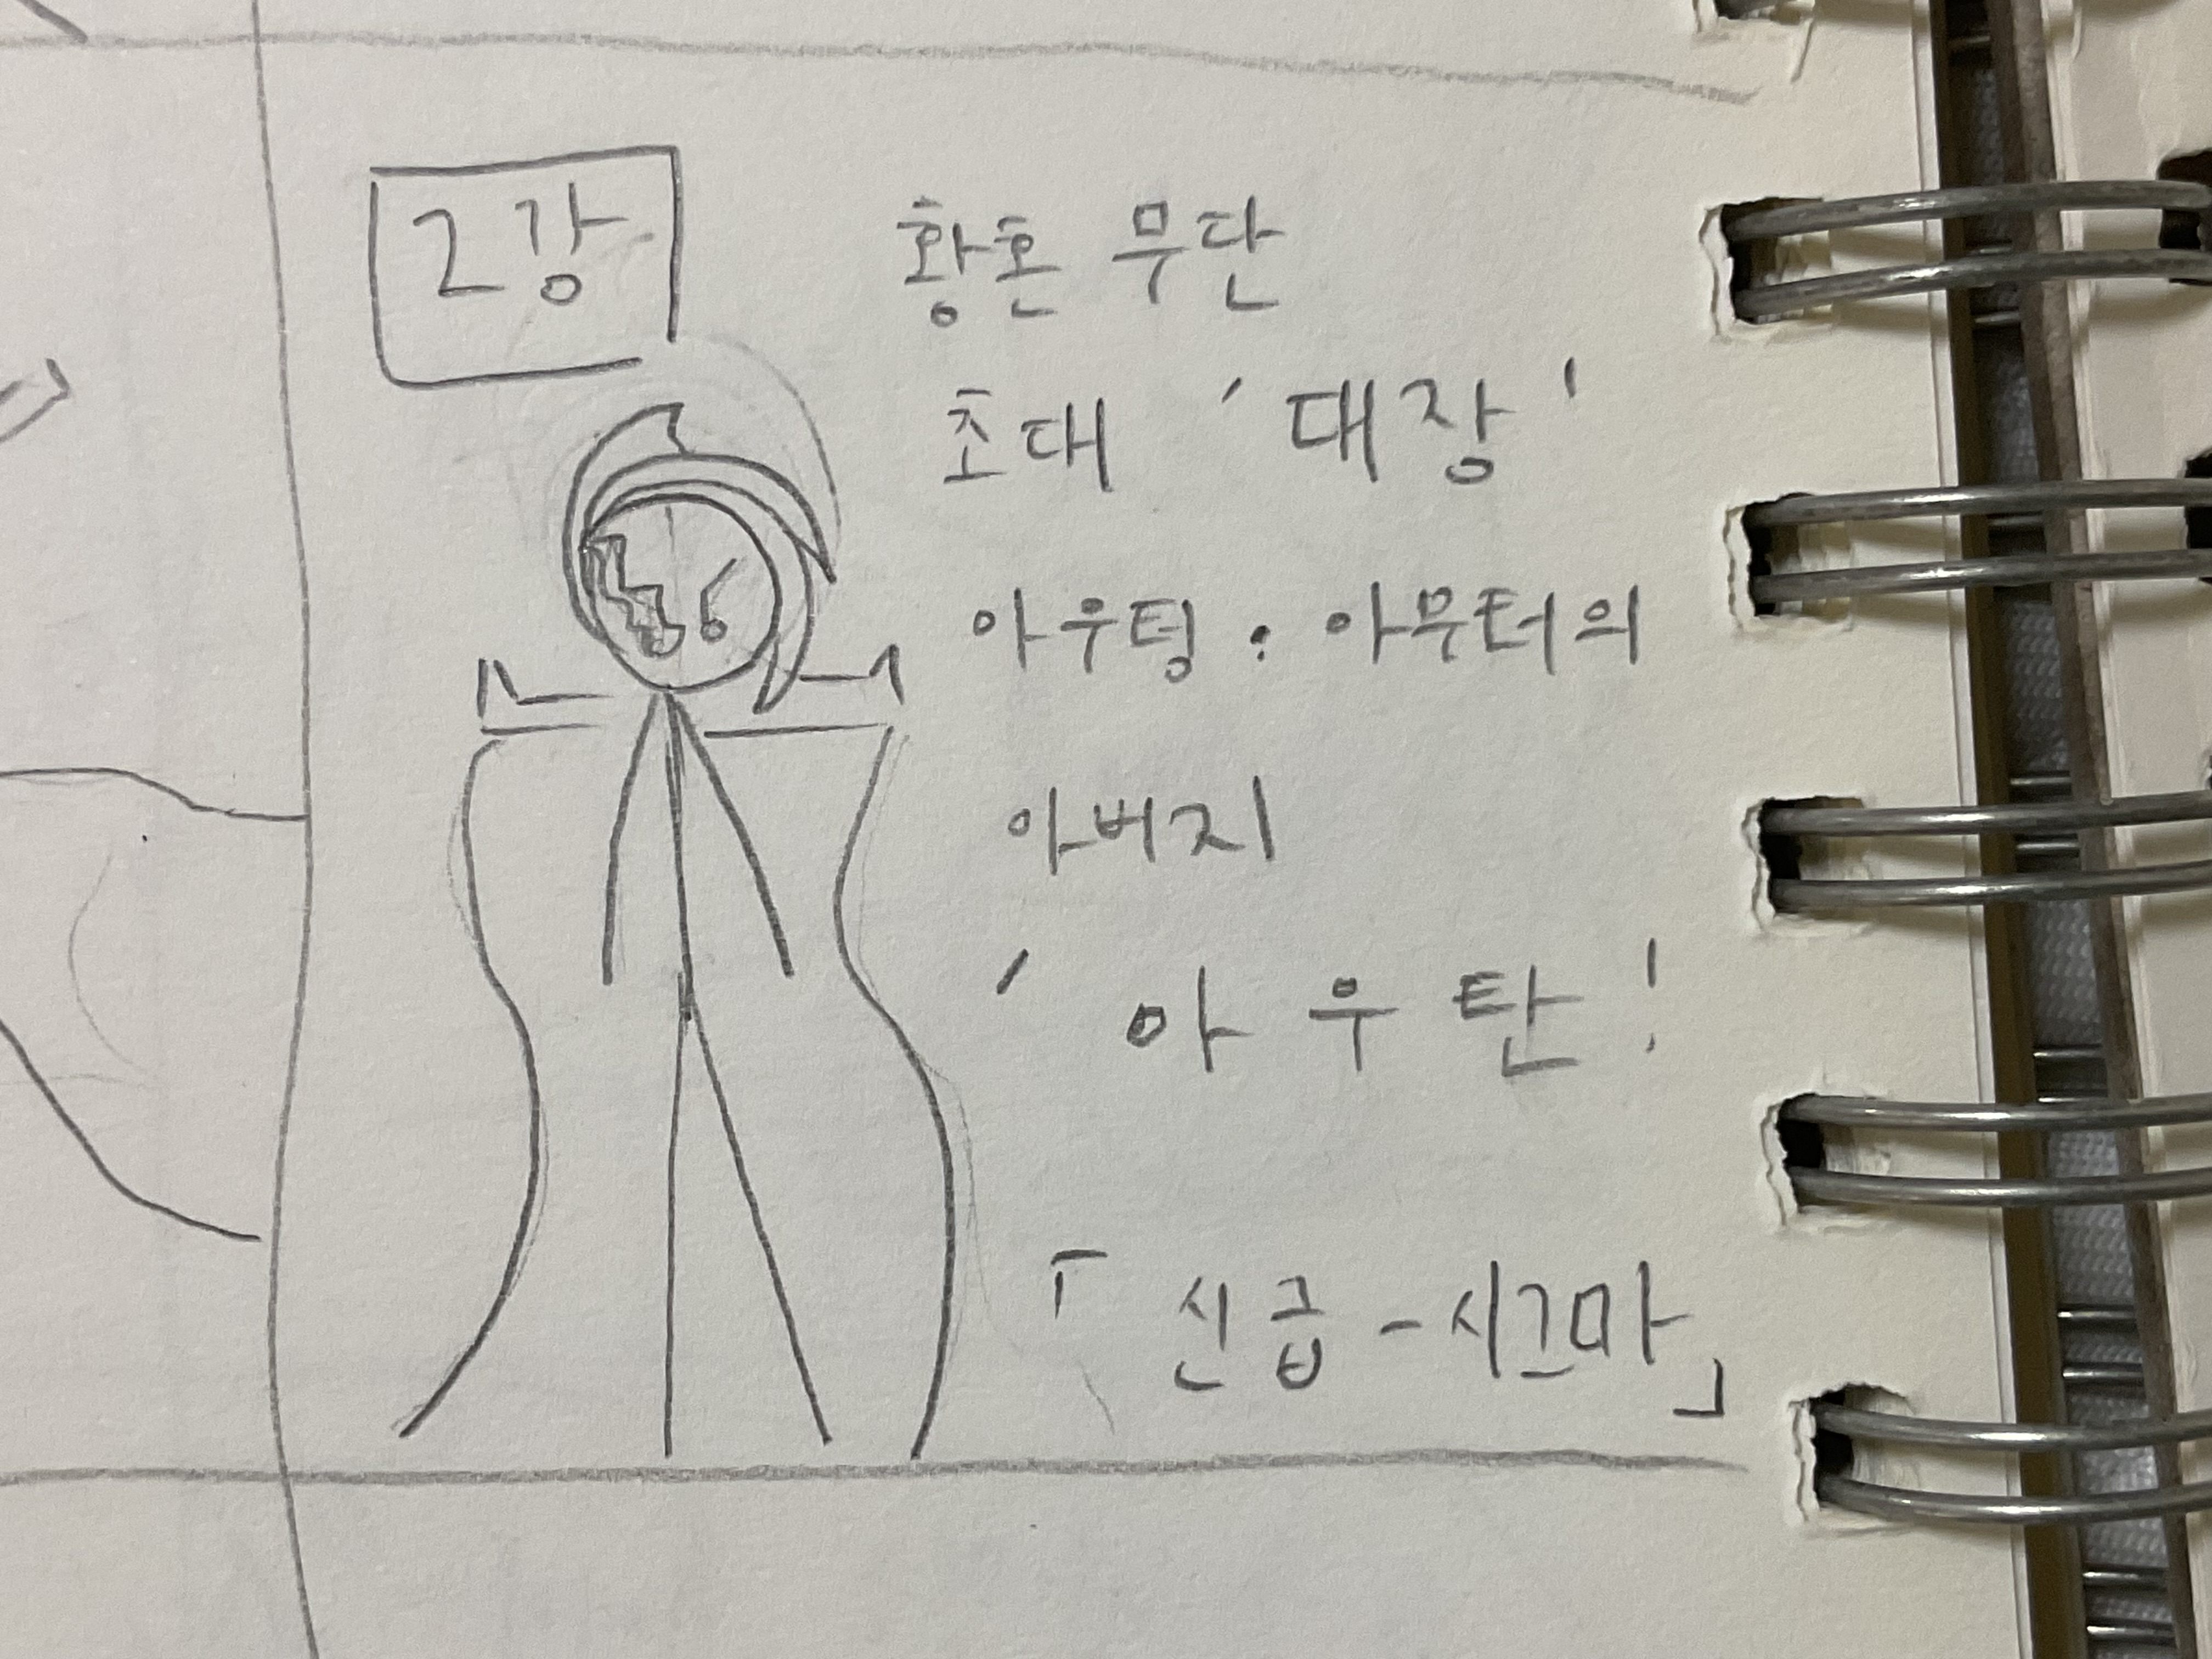 2강
황혼 무단
초대 '대장'
아우텅 · 아무터의
아버지
'아우탄'
「신급-시그마」